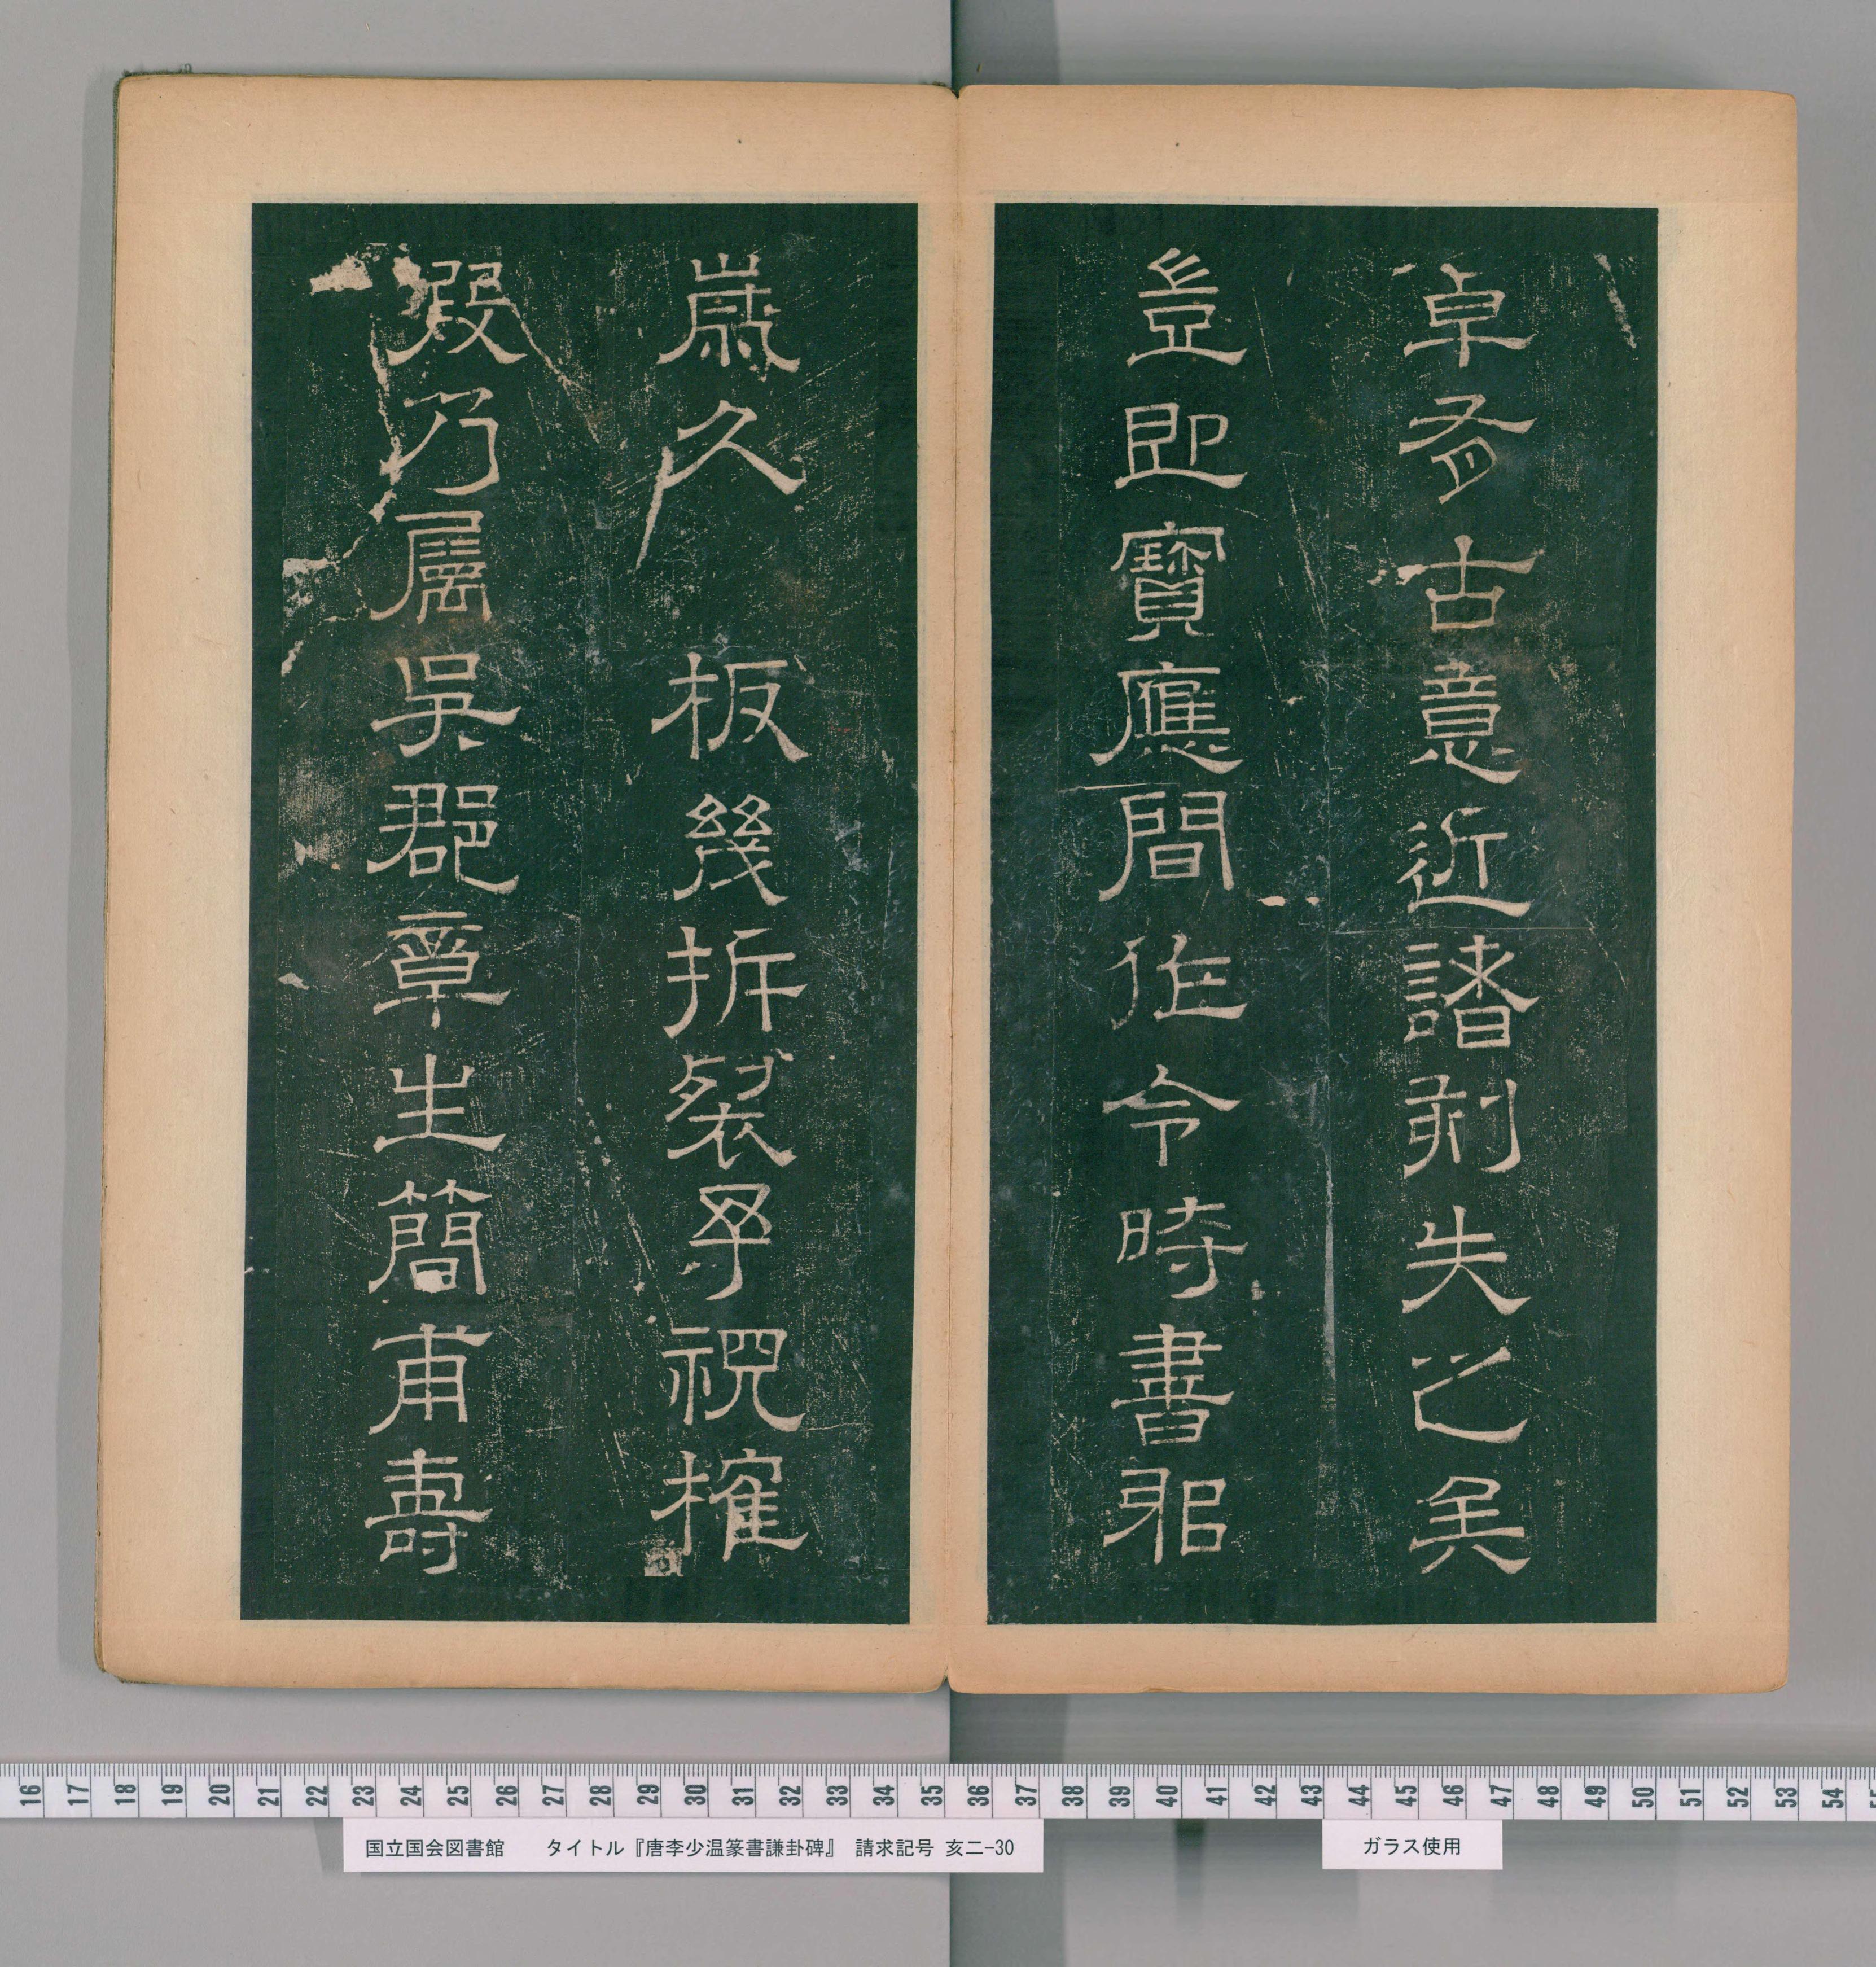 卓有古意近諸刻失之矣
豈即寶應間作令時書邪
歲久板幾折裂予視搉
暇乃屬吳郡章生簡甫壽
16 17 18 19 20 21 22 23 24 25 26 27 28 29 30 31 32 33 34 35 36 37 38 39 40 41 42 43 44 45 46 47 48 49 50 51 52 53 54
国立国会図書館 タイトル『唐李少温篆書謙卦碑』 請求記号 亥二-30
ガラス使用